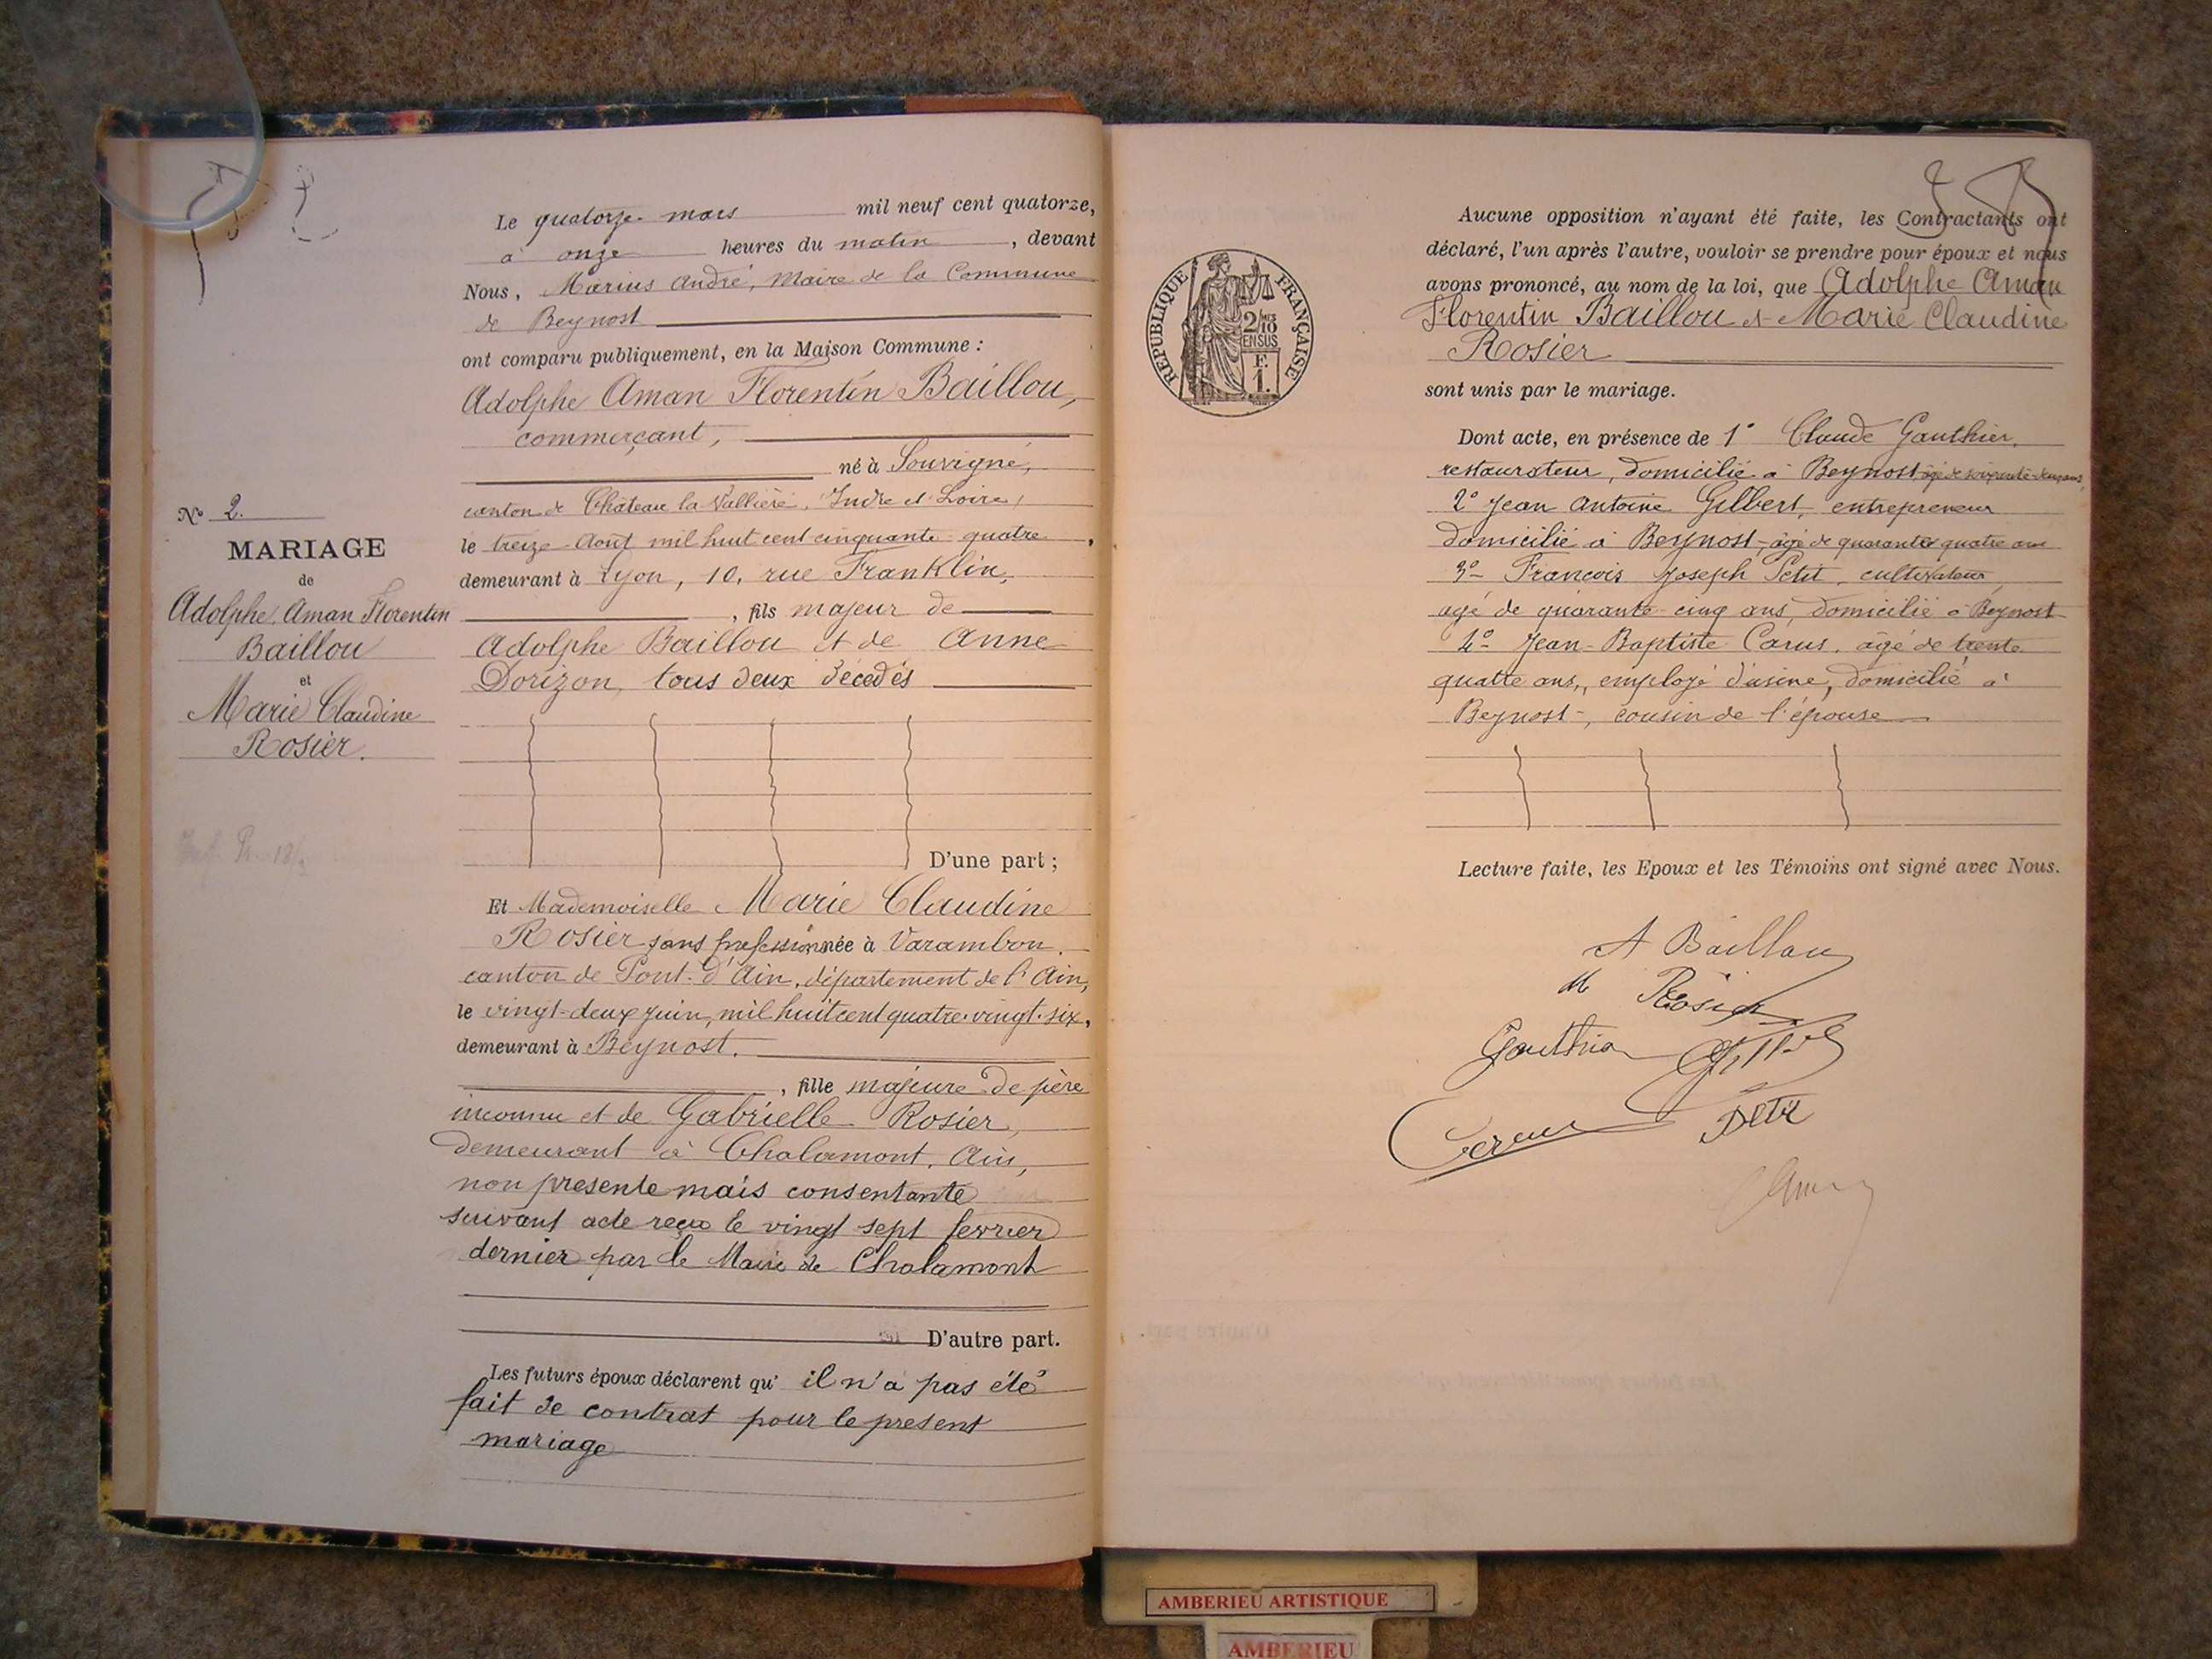 Le quatorze mars mil neuf cent quatorze,
à onze heures du matin, devant
Nous, Marius André, Maire de la Commune
de Beynost
ont comparu publiquement, en la Maison Commune :
Adolphe Aman Florentin Baillou,
commerçant,
né à Souvigné,
canton de Château la Vallière, Indre et Loire,
le treize Août mil huit cent cinquante quatre,
demeurant à Lyon, 10, rue Franklin,
, fils majeur de
Adolphe Baillou et de Anne
Dorizon, tous deux décédés
D'une part ;
Et Mademoiselle Marie Claudine
Rosier sans profession née à Varambon,
canton de Pont-d'Ain, département de l'Ain,
le vingt-deux juin, mil huit cent quatre-vingt-six,
demeurant à Beynost.
, fille majeure de père
inconnu et de Gabrielle Rosier,
demeurant à Chalamont, Ain,
non presente mais consentante
suivant acte reçu le vingt sept fevrier
dernier par le Maire de Chalamont
D'autre part.
Les futurs époux déclarent qu' il n'a pas été
fait de contrat pour le present
mariage
No 2.
MARIAGE
de
Adolphe Aman Florentin
Baillou
et
Marie Claudine
Rosier.
Aucune opposition n'ayant été faite, les Contractants ont
déclaré, l'un après l'autre, vouloir se prendre pour époux et nous
avons prononcé, au nom de la loi, que Adolphe Aman
Florentin Baillou et Marie Claudine
Rosier
sont unis par le mariage.
Dont acte, en présence de 1° Claude Gauthier,
restaurateur, domicilié à Beynost âgé de
2° Jean Antoine Gilbert, entrepreneur
domicilié à Beynost, âgé de quarante quatre ans
3° François Joseph Petit, cultivateur
agé de quarante-cinq ans, domicilié à Beynost
4° Jean-Baptiste Carus, âgé de trente
quatre ans, employé d'usine, domicilié à
Beynost, cousin de l'épouse
Lecture faite, les Epoux et les Témoins ont signé avec Nous.
A Baillou
M Rosier
Gauthier
Petit
REPUBLIQUE FRANÇAISE
2/10
EN SUS
F.
1.
AMBERIEU ARTISTIQUE
AMBERIEU